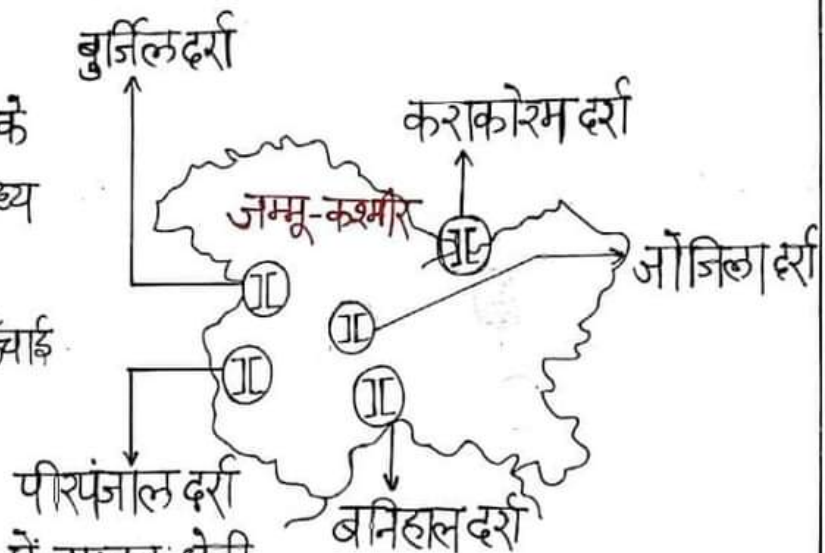 बुर्जिल दर्रा
के
कराकोरम दर्रा
जम्मू-कश्मीर
जोजिला दर्रा
पीरपंजाल दर्रा
बनिहाल दर्रा